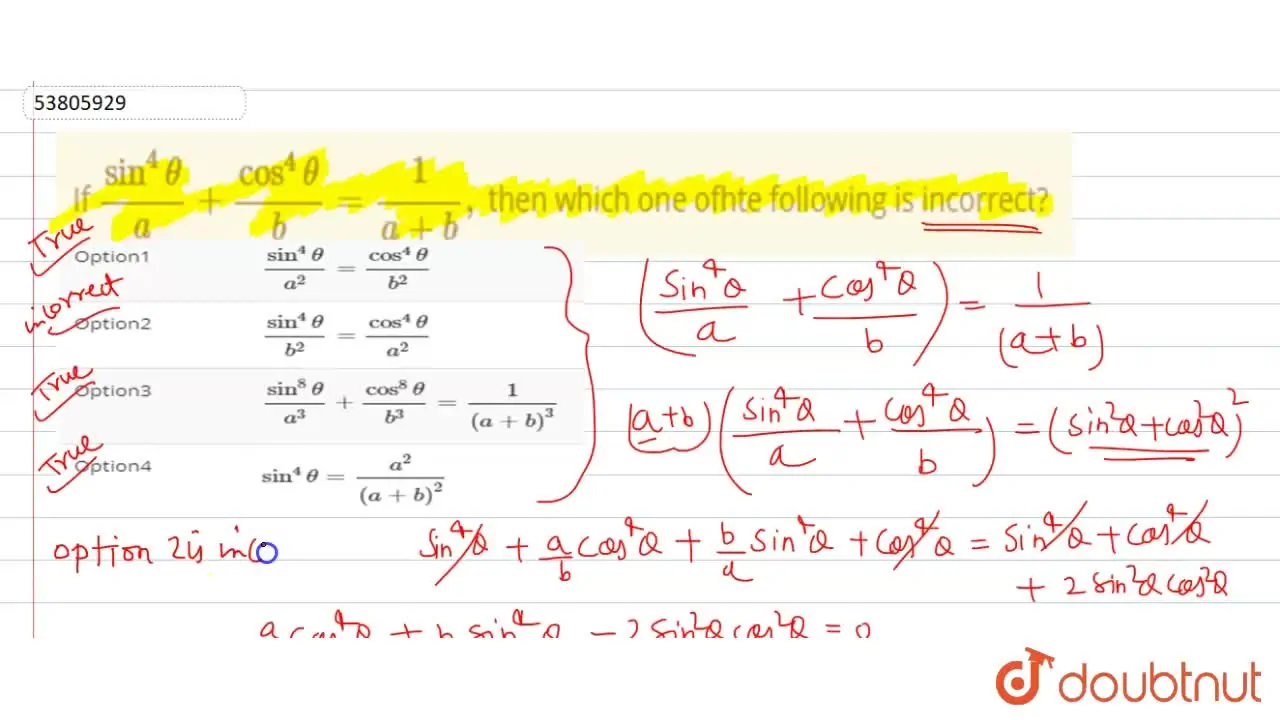 53805929
If sin⁴ θ / a + cos⁴ θ / b = 1 / (a + b), then which one ofhte following is incorrect?
True
Option1 sin⁴ θ / a² = cos⁴ θ / b²
incorrect
Option2 sin⁴ θ / b² = cos⁴ θ / a²
True
Option3 sin⁸ θ / a³ + cos⁸ θ / b³ = 1 / (a + b)³
True
Option4 sin⁴ θ = a² / (a + b)²
(Sin⁴θ / a + Cos⁴θ / b) = 1 / (a+b)
(a+b) (Sin⁴θ / a + Cos⁴θ / b) = (Sin²θ + Cos²θ)²
option 2 is inco
Sin⁴θ + a/b Cos⁴θ + b/a Sin⁴θ + Cos⁴θ = Sin⁴θ + Cos⁴θ
+ 2 Sin²θ Cos²θ
a Cos⁴θ + b Sin⁴θ - 2 Sin²θ Cos²θ = 0
doubtnut